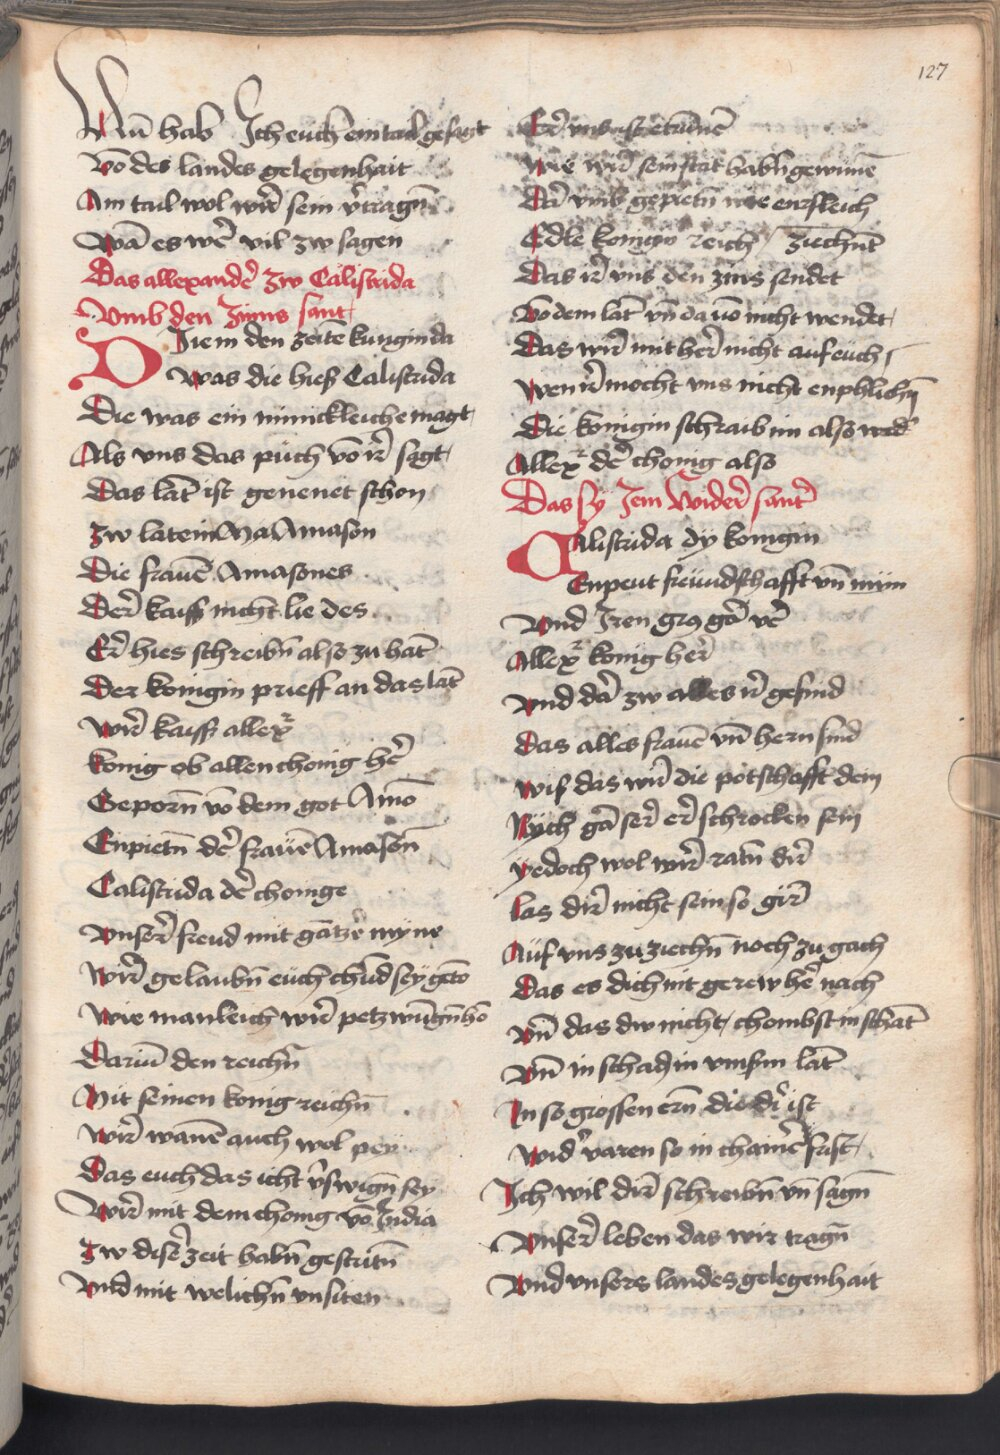 127
Nu̅ hab Ich euch ein tail gesagt
Vo̅ des landes gelegenhait
Am tail wol wir̉ sein v̉tragn̅
Wa̅ es wer̉ vil zw sagen
Das allexander̉ zw Calistrida
Vmb den Zinns sant
Die in den zeite̅ kunginda
Was die hiess Calistrida
Die was ein minickleiche magt
Als vns das puch vo̅ ir̉ sagt
Das la̅t ist genenet schon
zw latein Na Amason
Die fraue̅ Amasones
Der̉ kaiss nicht lie des
Er̉ hies schreibn̅ also zu hat̅
Der konigin prieff an das lat̅
Wir̉ kaiss allexr̉
konig ob allen chonig her̉
Geporn̅ vo̅ dem got Amo̅
Enpietn̅ der̉ fraue̅ Amason̅
Calistrida der̉ choinge
Vnser̉ freud mit ga̅tzer̉ myne
Wir̉ gelaubn̅ euch chu̅d sey geto̅
Wie manleich wir̉ petzwu̅gn̅ ho̅
Dariu̅ den reichn̅
Mit seinen konig reichn̅
Wir̉ wane̅ auch wol pey
Das euch das icht v̉swign̅ sey
Wir̉ mit dem chonig vo̅ India
Zw diser̉ zeit habn̅ gestritn̅
Vnd mit welichn̅ vnsiten
Er̉ vns
Wie wir̉ sein stat habn̅ gewinne̅
Da̅ vmb gepietn̅ wir eursleich
Edle konigin reich ziechn̅t
Das ir̉ vns den zins sendet
Vo dem lat̅ vn̅ da vo̅ nicht wendet
Das wir̉ mit her̉ nicht auf euch
Wen ir̉ mocht vns nicht enphlichn̅
Die konigin schraib im also wid̉
Allexr̉ der̉ chonig also
Das sy Jem wider̉ sant̉
Calistrida dy konigin
Enpeut freundschafft vn̅ myn
Vnd Iren grus ga̅ ver̉
Allexr̉ konig her̉
Vnd da̅ zw alles ir̉ gesind
Das alles fraue̅ vn̅ hern sind
Wiss das wir̉ die potschafft dein
Sych ga̅ ser̉ er̉schrocken sein
Yedoch wol wir̉ ratn̅ dir̉
Las dir̉ nicht sein so gir̉
Auf vns zu ziechn̅ noch zu gach
Das es dich nit gerew her̉ nach
Vn̅ das dw nicht chombst in schat̅
Vn̅ in schadn̅ in vnss̉m lat̅
In so grossen ern̅ die dir̉ ist
Wid̉ varen so in chaine̅ frist
Ich wil dir̉ schreibn̅ vn̅ sagn̅
Vnser̉ leben das wir tragn̅
Vnd vnsers landes gelegenhait